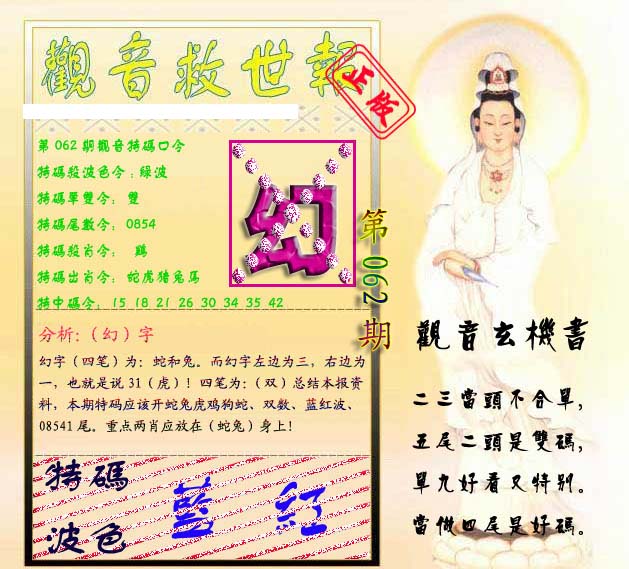 觀音救世報
正版
第 062 期觀音特碼口令
特碼殺波色令：綠波
特碼單雙令： 雙
特碼尾數令： 0854
特碼殺肖令： 鷄
特碼出肖令： 蛇虎猪兔馬
特中碼令： 15 18 21 26 30 34 35 42
幻
第 062 期
分析:（幻）字
幻字（四笔）为：蛇和兔。而幻字左边为三，右边为
一，也就是说 31（虎）！四笔为：（双）总结本报资
料，本期特码应该开蛇兔虎鸡狗蛇、双数、蓝红波、
08541 尾。重点两肖应放在（蛇兔）身上！
特碼
波色
藍 紅
觀音玄機書
二三當頭不合單，
五尾二頭是雙碼，
單九好看又特别。
當做四尾是好碼。